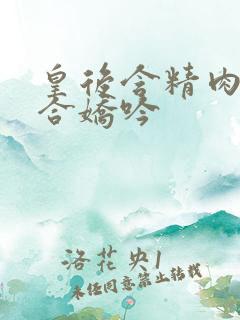 皇後含精肉
合嬌吟
洛花央1
未经同意禁止转载